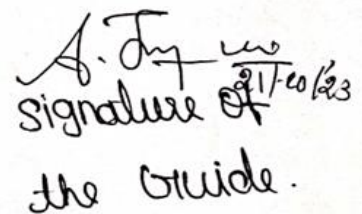 A.
21/10/23
signature of
the Guide.